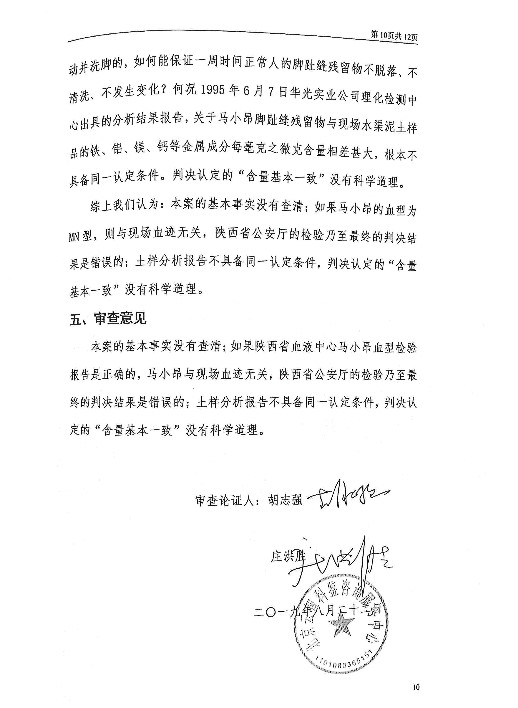 第10页共12页
动并洗脚的，如何能保证一周时间正常人的脚趾缝残留物不脱落、不
清洗、不发生变化？何况1995年6月7日华光实业公司理化检测中
心出具的分析结果报告，关于马小昂脚趾缝残留物与现场水渠泥土样
品的铁、铝、镁、钙等金属成分每毫克之微克含量相差甚大，根本不
具备同一认定条件。判决认定的“含量基本一致”没有科学道理。
综上我们认为：本案的基本事实没有查清；如果马小昂的血型为
MN型，则与现场血迹无关，陕西省公安厅的检验乃至最终的判决结
果是错误的；土样分析报告不具备同一认定条件，判决认定的“含量
基本一致”没有科学道理。
五、审查意见
本案的基本事实没有查清；如果陕西省血液中心马小昂血型检验
报告是正确的，马小昂与现场血迹无关，陕西省公安厅的检验乃至最
终的判决结果是错误的；土样分析报告不具备同一认定条件，判决认
定的“含量基本一致”没有科学道理。
审查论证人：胡志强
庄洪胜
二〇一九年八月二十
10